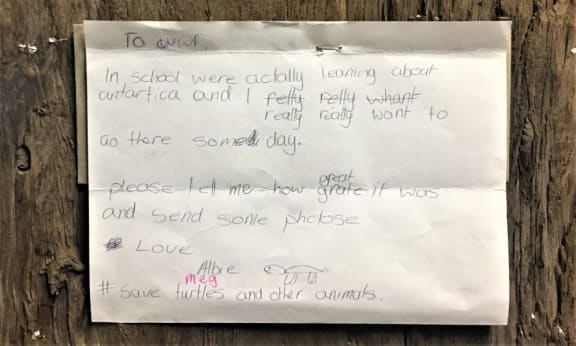 To wwf,
In school were actally leaning about
antartica and I relly relly whant
really really want to
Go there someday.
great
please tell me how grate it was
and send some photose
Love
Albie
meg
# save turtles and other animals.